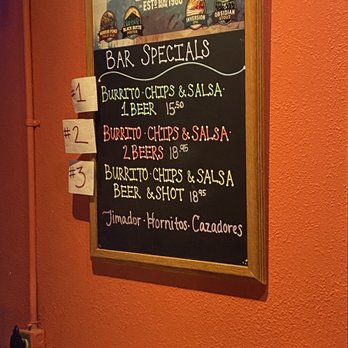 EST'D 1988
BLACK BUTTE
INVERSION
OBSIDIAN
BAR SPECIALS
#1
BURRITO · CHIPS & SALSA ·
1 BEER 15.50
#2
BURRITO · CHIPS & SALSA ·
2 BEERS 18.95
#3
BURRITO · CHIPS & SALSA
BEER & SHOT 18.95
~Jimador · Hornitos · Cazadores